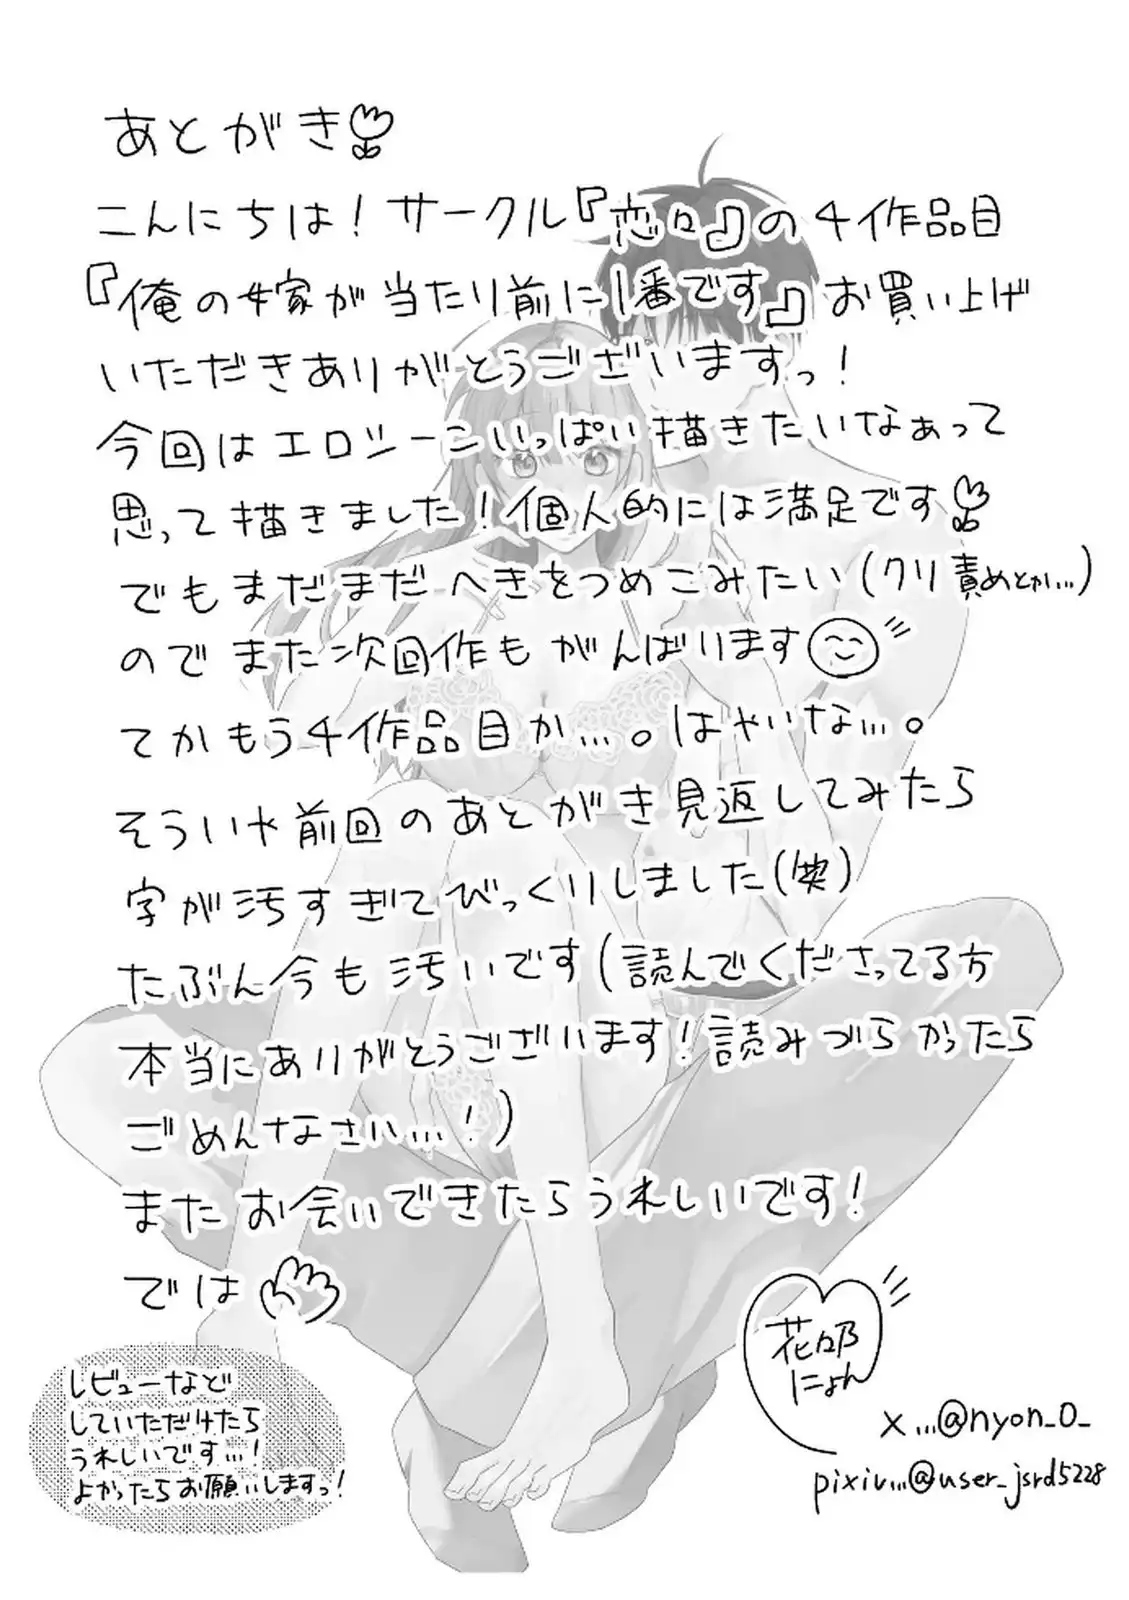 あとがき
こんにちは！サークル『恋々』の4作品目
『俺の女家が当たり前に1番です』お買い上げ
いただきありがとうございますっ！
今回はエロシーンいっぱい描きたいなぁって
思って描きました！個人的には満足です
でもまだまだへきをつめこみたい(クリ責めとか…)
のでまた次回作もがんばります
てかもう4作品目か…。はやいな…。
そういや前回のあとがき見返してみたら
字が汚すぎてびっくりしました(笑)
たぶん今も汚いです(読んでくださってる方
本当にありがとうございます！読みづらかったら
ごめんなさい…！)
またお会いできたらうれしいです！
では
レビューなど
していただけたら
うれしいです…！
よかったらお願いしますっ！
花々乃
にょん
X…@nyon_0_
pixiv…@user_jsrd5228